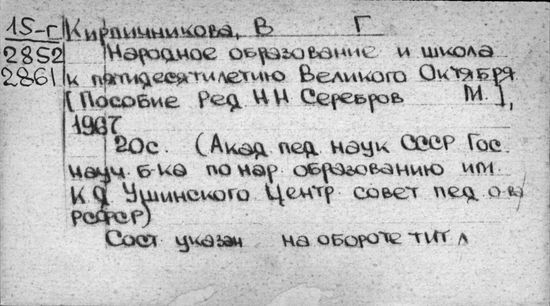 15-Г Кирпичникова, В Г
2852 Народное образование и школа
2861 к пятидесятилетию Великого Октября
[Пособие Ред Н Н Серебров М.],
1967
20с. (Акад пед наук СССР Гос.
науч. б-ка по нар. образованию им.
К Д Ушинского Центр. совет пед о-ва
РСФСР)
Сост указан на обороте тит л